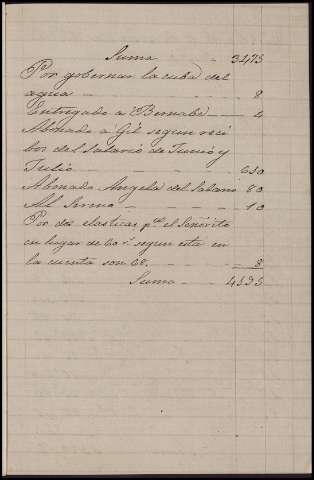 Suma - - 3475
Por gobernar la cuba del
agua - - - - 8
Entregado a Bernabé - - 4
Abonado a Gil segun reci
bos del salario de Junio y
Julio - - - - 
Abonado Angela del Salario 80
Al - - - - 10
Por dos elasticas pª el Señorito
en lugar de 60 r.s segun esta en
la cuenta son 68. - - - 8
Suma - -